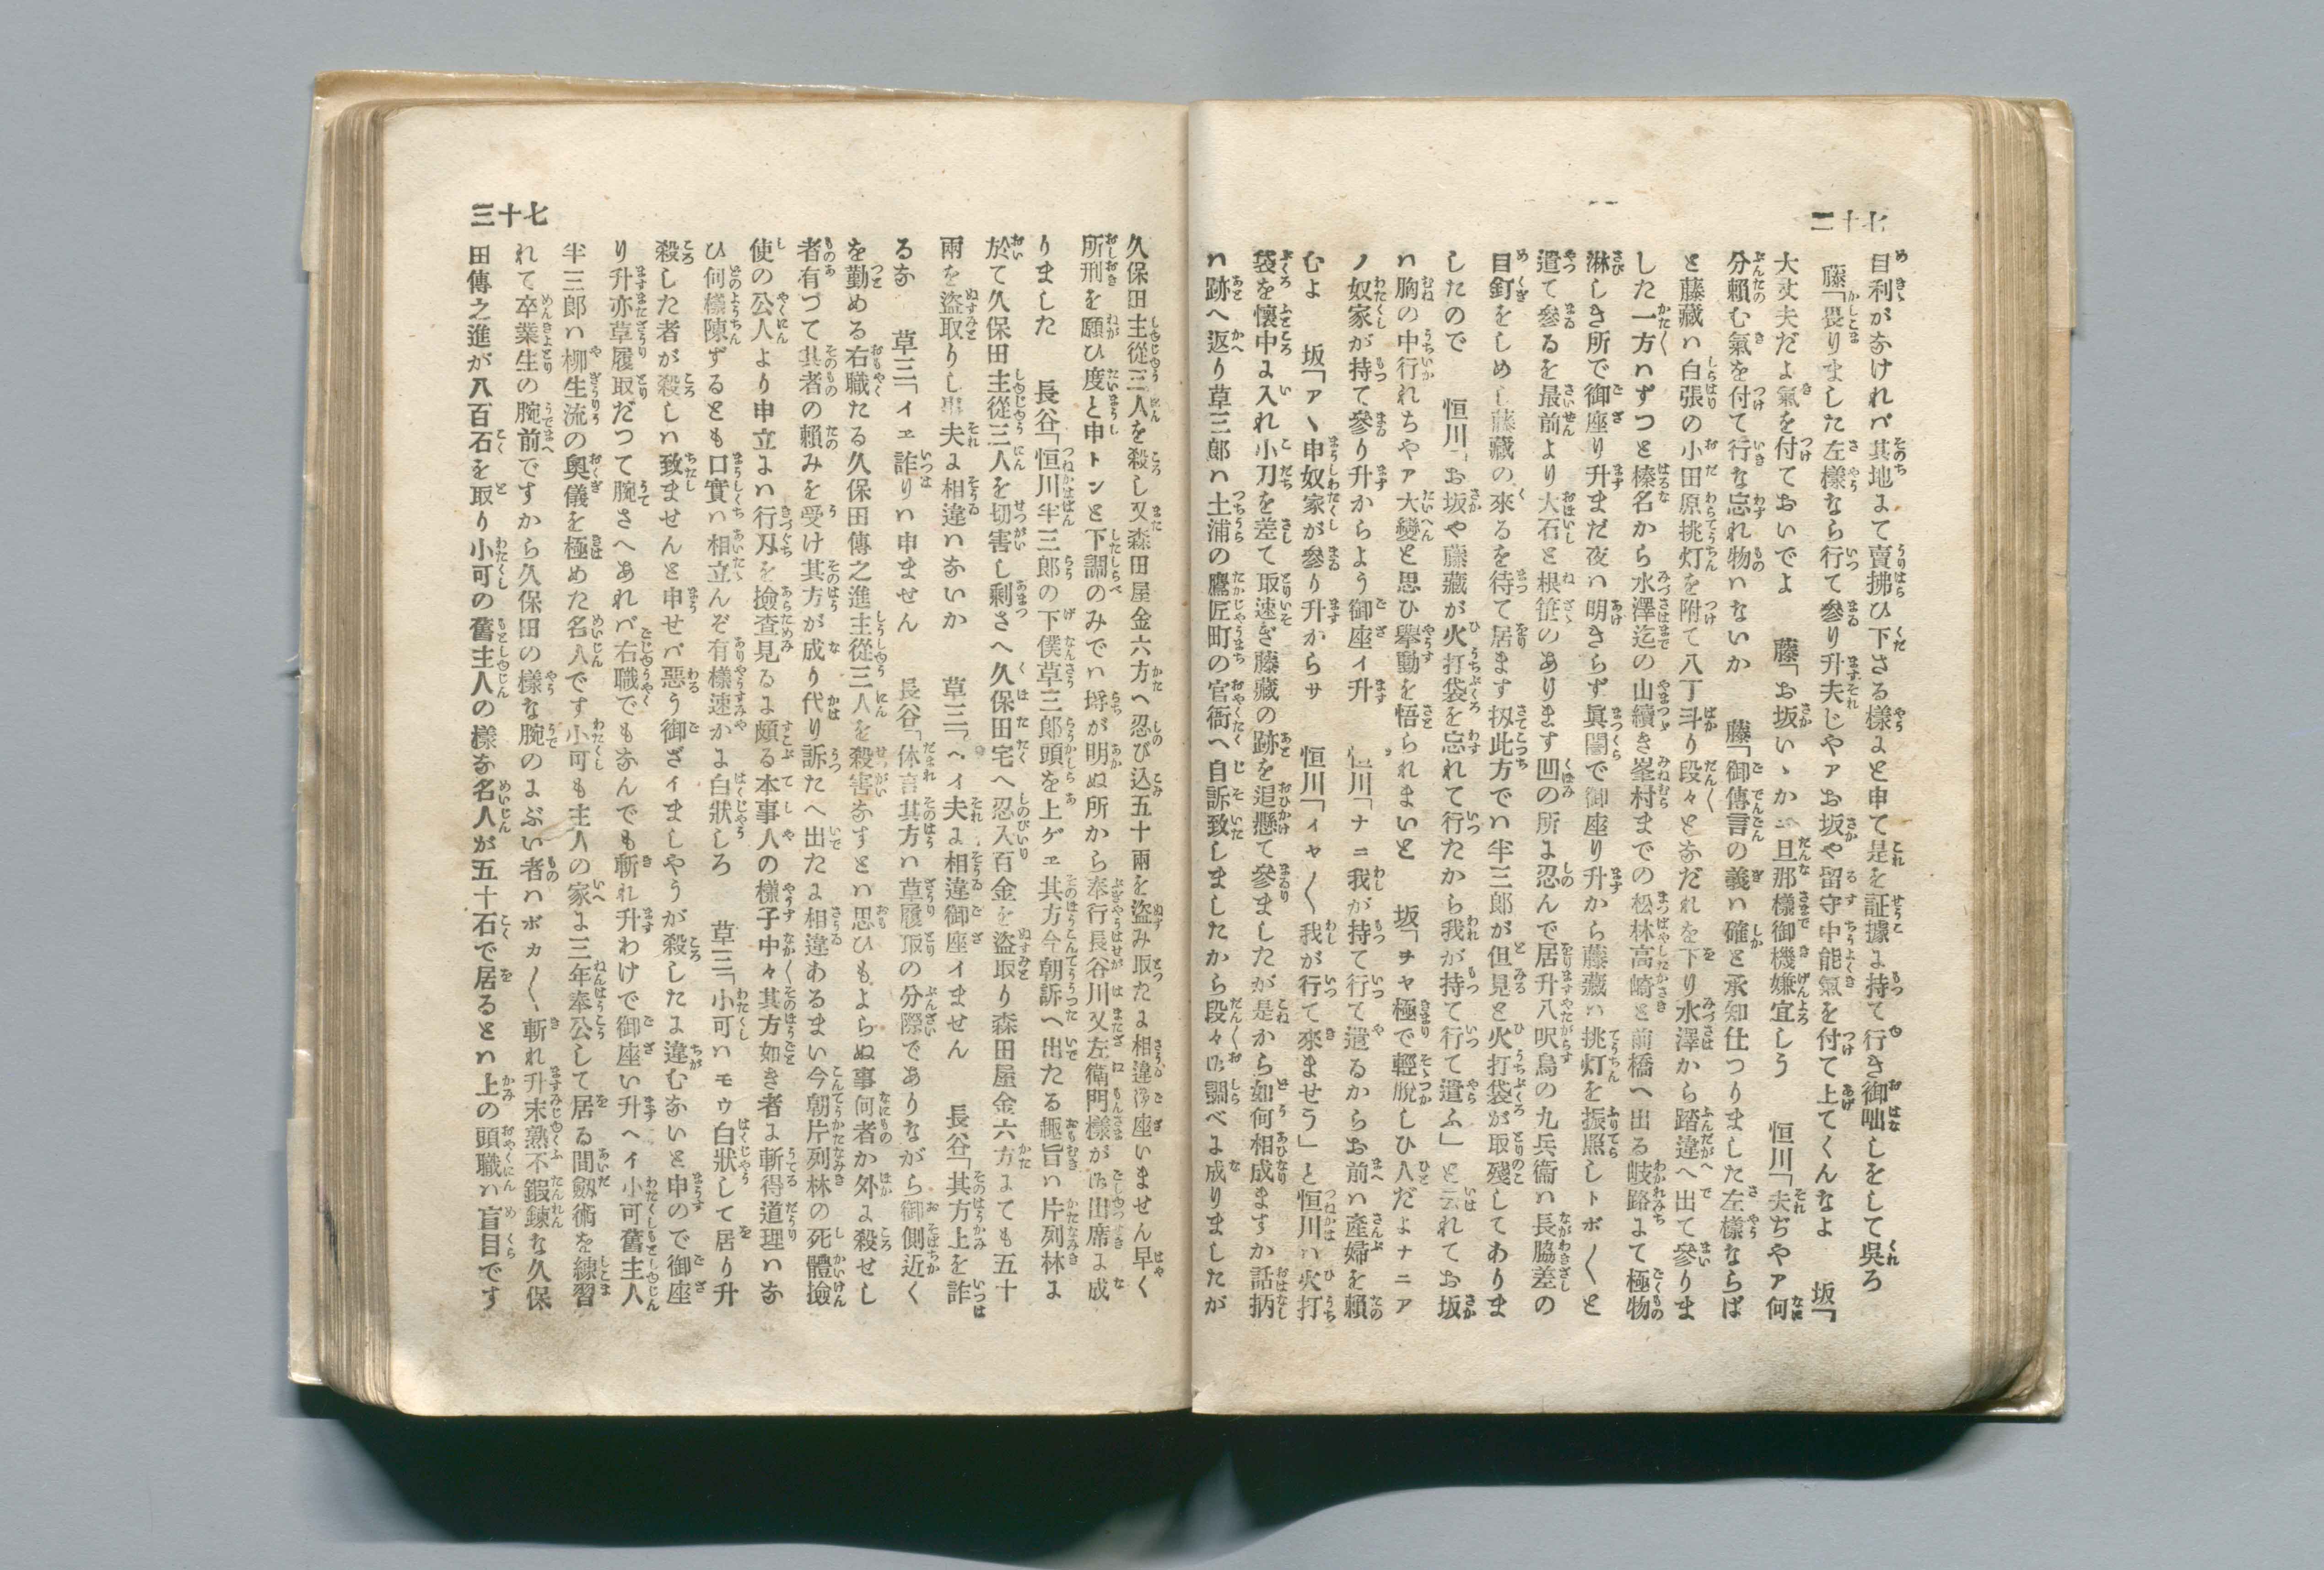 二十七
目利がなけれバ其地よて賣拂ひ下さる様よと申て是を証據よ持て行き御咄しをして呉ろ
藤「畏りました左様なら行て參り升夫じやアお坂や留守中能氣を付て上てくんなよ　坂「
大丈夫だよ氣を付ておいでよ　藤「お坂いゝか　旦那様御機嫌宜しう　恒川「夫ぢやア何
分頼む氣を付て行な忘れ物ハないか　藤「御傳言の義ハ確と承知仕つりました左様ならば
と藤藏ハ白張の小田原挑灯を附て八丁斗り段々となだれを下り水澤から踏違へ出て參りま
した一方ハずつと榛名から水澤迄の山續き峯村までの松林高崎と前橋へ出る岐路よて極物
淋しき所で御座り升まだ夜ハ明きらず眞闇で御座り升から藤藏ハ挑灯を振照しトボ〱と
遣て參るを最前より大石と根笹のあります凹の所よ忍んで居升八咫烏の九兵衞ハ長脇差の
目釘をしめし藤藏の來るを待て居ます扨此方でハ半三郎が但見と火打袋が取殘してありま
したので　恒川「お坂や藤藏が火打袋を忘れて行たから我が持て行て遣ふ」と云れてお坂
ハ胸の中行れちやア大變と思ひ擧動を悟られまいと　坂「ヲヤ極で輕脱しひ人だよナニア
ノ奴家が持て參り升からよう御座イ升　恒川「ナニ我が持て行て遣るからお前ハ產婦を頼
むよ　坂「アヽ申奴家が參り升からサ　恒川「イヤ〱我が行て來ませう」と恒川ハ火打
袋を懷中よ入れ小刀を差て取速ぎ藤藏の跡を追懸て參ましたが是から如何相成ますか話柄
ハ跡へ返り草三郎ハ土浦の鷹匠町の官衙へ自訴致しましたから段々御調べよ成りましたが
三十七
久保田主從三人を殺し又森田屋金六方へ忍び込五十兩を盜み取たよ相違御座いません早く
所刑を願ひ度と申トンと下調のみでハ埒が明ぬ所から奉行長谷川又左衞門様が御出席よ成
りました　長谷「恒川半三郎の下僕草三郎頭を上ゲヱ其方今朝訴へ出たる趣旨ハ片列林よ
於て久保田主從三人を切害し剩さへ久保田宅へ忍入百金を盜取り森田屋金六方よても五十
兩を盜取りし事夫よ相違ハないか　草三「ヘイ夫よ相違御座イません　長谷「其方上を詐
るな　草三「イヱ詐りハ申ません　長谷「体言其方ハ草履取の分際でありながら御側近く
を勤める右職たる久保田傳之進主從三人を殺害なすとハ思ひもよらぬ事何者か外よ殺せし
者有づて其者の頼みを受け其方が成り代り訴たへ出たよ相違あるまい今朝片列林の死體撿
使の公人より申立よハ行刄を撿查見るよ頗る本事人の様子中々其方如き者よ斬得道理ハな
ひ何樣陳ずるとも口實ハ相立んぞ有樣速かよ白狀しろ　草三「小可ハモウ白狀して居り升
殺した者が殺しハ致ませんと申せバ惡う御ざイましやうが殺したよ違むないと申ので御座
り升亦草履取だつて腕さへあれバ右職でもなんでも斬れ升わけで御座い升ヘイ小可舊主人
半三郎ハ柳生流の奧儀を極めた名人です小可も主人の家よ三年奉公して居る間劔術を練習
れて卒業生の腕前ですから久保田の樣な腕のよぶい者ハボカ〱斬れ升末熟不鍜錬な久保
田傳之進が八百石を取り小可の舊主人の樣な名人が五十石で居るとハ上の頭職ハ盲目です